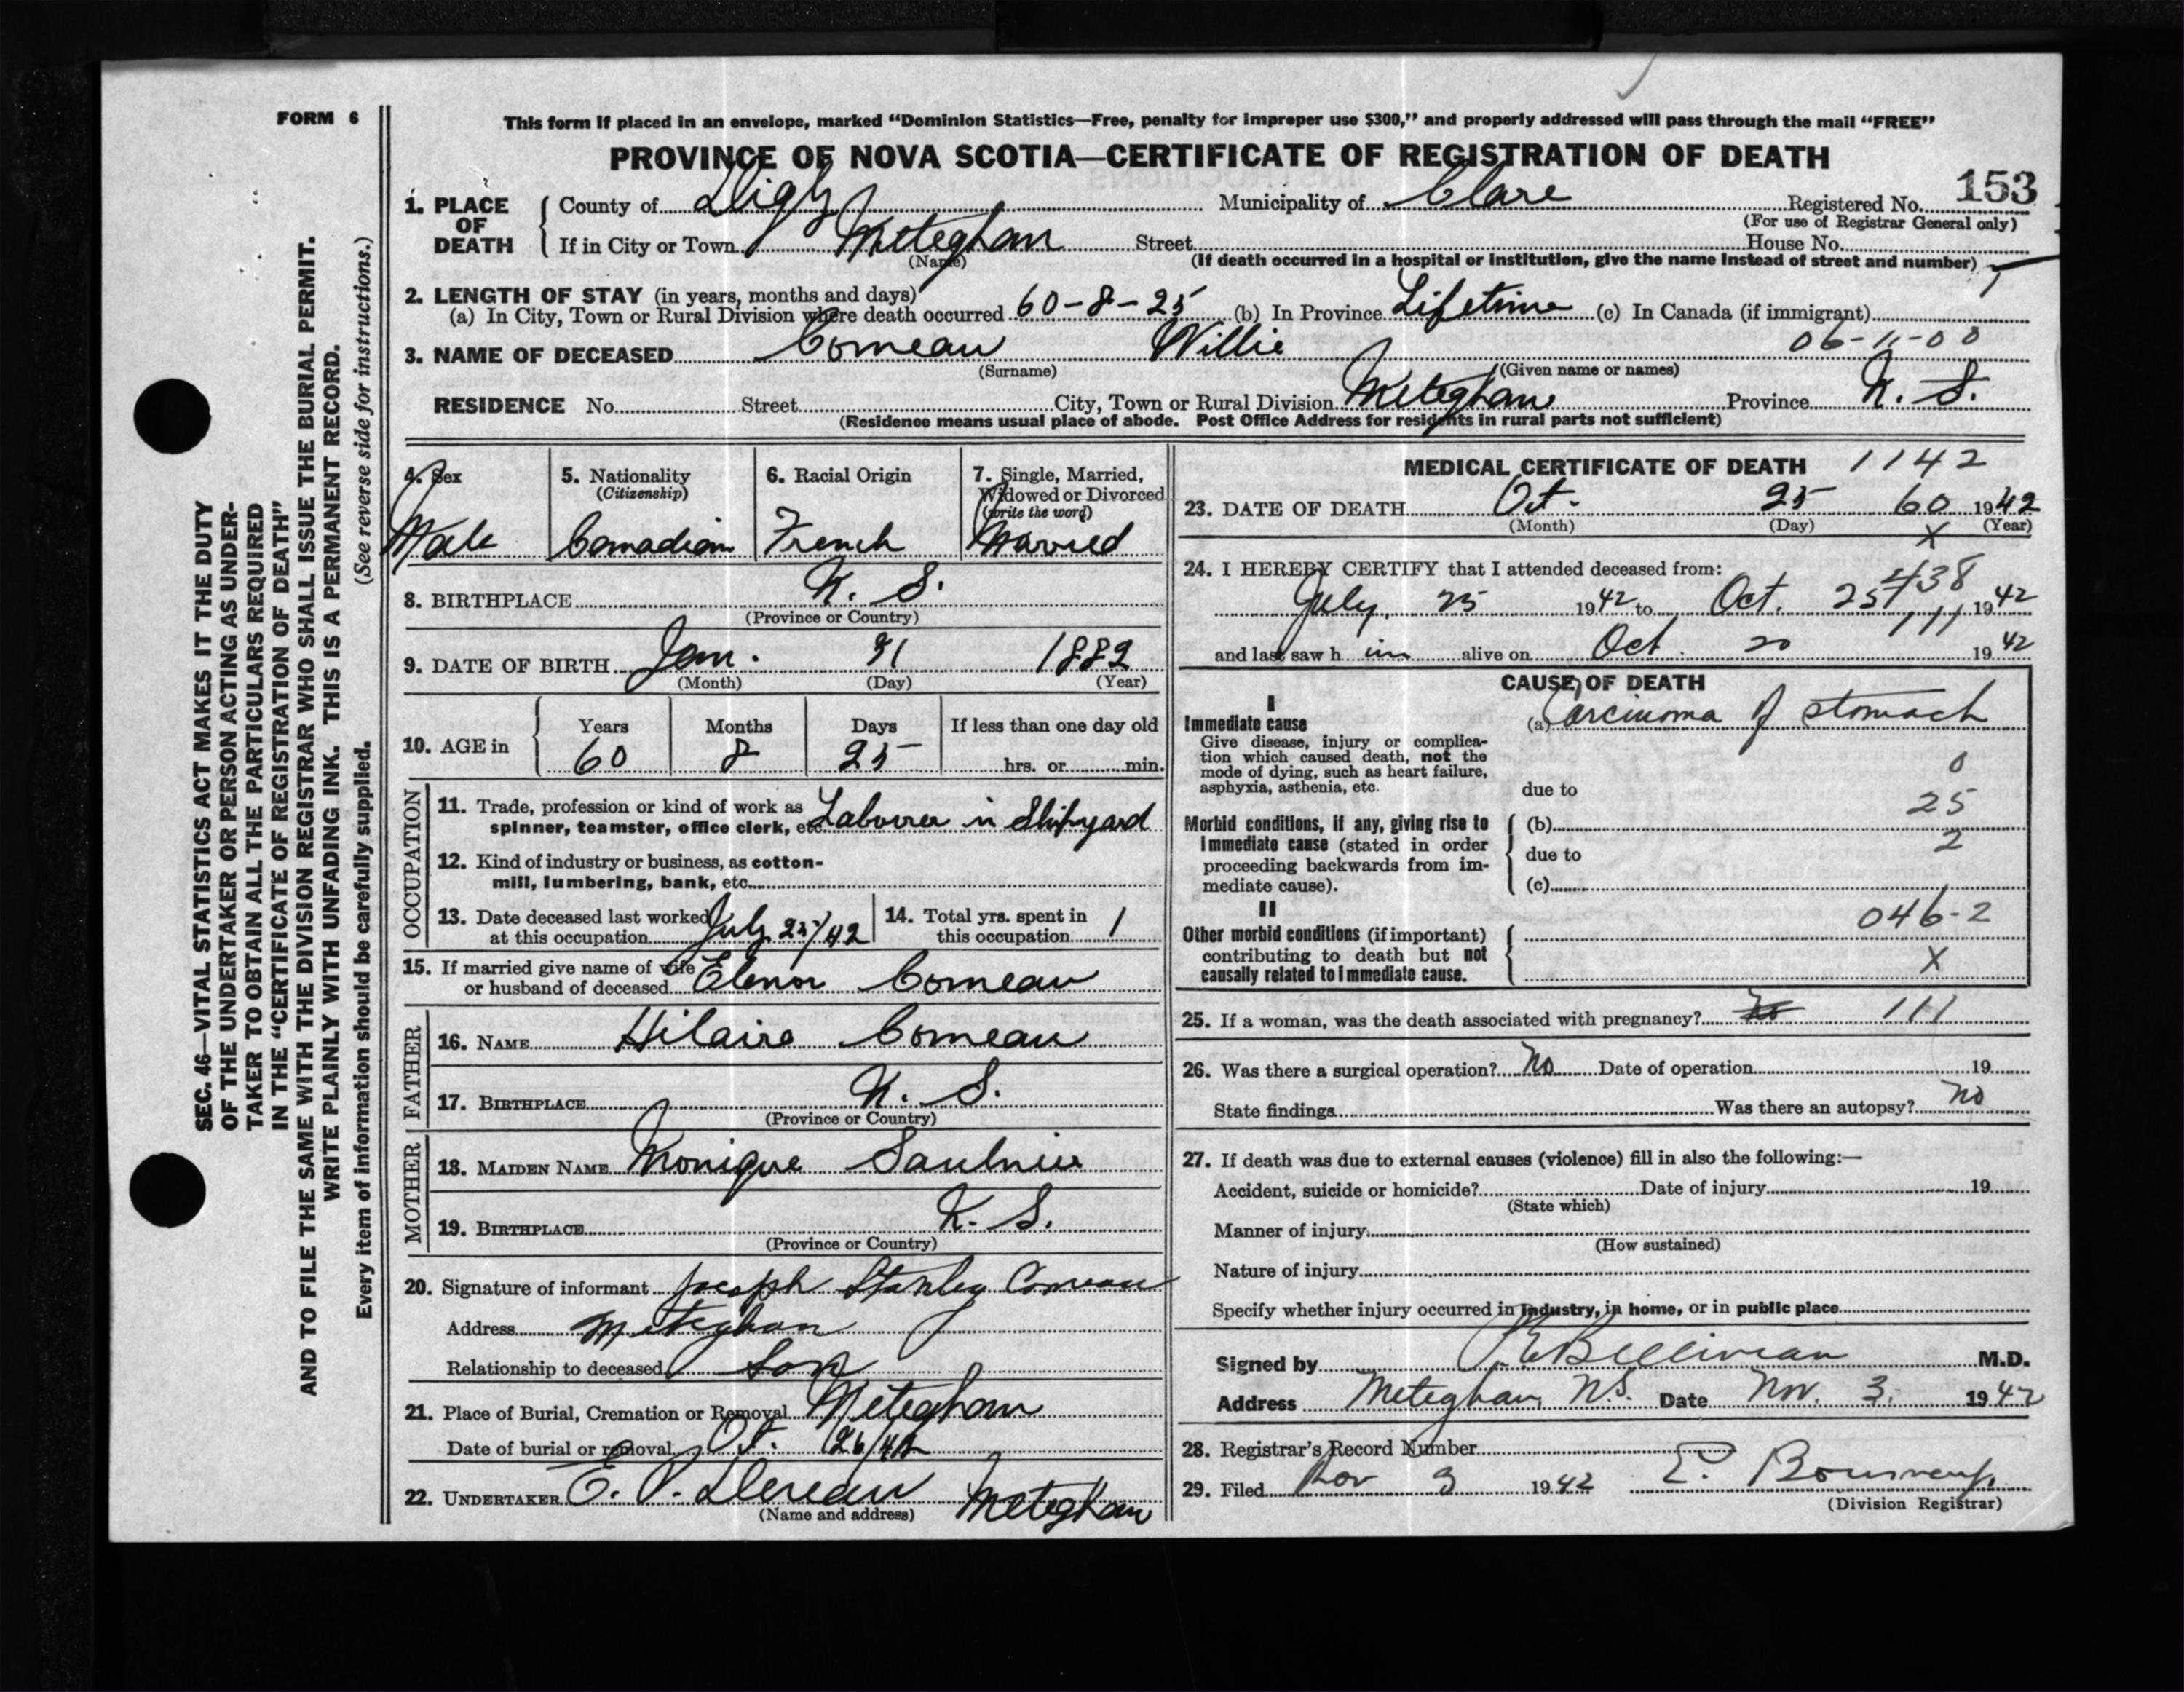 FORM 6
This form if placed in an envelope, marked “Dominion Statistics—Free, penalty for improper use $300,” and properly addressed will pass through the mail “FREE”
PROVINCE OF NOVA SCOTIA—CERTIFICATE OF REGISTRATION OF DEATH
153
1. PLACE OF DEATH County of Digby Municipality of Clare Registered No.
(For use of Registrar General only)
If in City or Town Meteghan Street House No.
(Name) (If death occurred in a hospital or institution, give the name instead of street and number)
2. LENGTH OF STAY (in years, months and days)
(a) In City, Town or Rural Division where death occurred 60-8-25 (b) In Province Lifetime (c) In Canada (if immigrant)
06-11-00
3. NAME OF DECEASED Comeau Willie
(Surname) (Given name or names)
RESIDENCE No. Street City, Town or Rural Division Meteghan Province N. S.
(Residence means usual place of abode. Post Office Address for residents in rural parts not sufficient)
4. Sex 5. Nationality 6. Racial Origin 7. Single, Married,
(Citizenship) Widowed or Divorced
(write the word)
Male Canadian French Married
8. BIRTHPLACE N. S.
(Province or Country)
9. DATE OF BIRTH Jan. 31 1882
(Month) (Day) (Year)
Years Months Days If less than one day old
10. AGE in 60 8 25 hrs. or min.
OCCUPATION
11. Trade, profession or kind of work as
spinner, teamster, office clerk, etc. Labourer in Shipyard
12. Kind of industry or business, as cotton-
mill, lumbering, bank, etc.
13. Date deceased last worked
at this occupation July 25/42
14. Total yrs. spent in
this occupation 1
15. If married give name of wife
or husband of deceased Elenor Comeau
FATHER
16. NAME Hilaire Comeau
17. BIRTHPLACE N. S.
(Province or Country)
MOTHER
18. MAIDEN NAME Monique Saulnier
19. BIRTHPLACE N. S.
(Province or Country)
20. Signature of informant Joseph Stanley Comeau
Address Meteghan
Relationship to deceased Son
21. Place of Burial, Cremation or Removal Meteghan
Date of burial or removal Oct. 26/42
22. UNDERTAKER E. Meteghan
(Name and address)
MEDICAL CERTIFICATE OF DEATH 1142
23. DATE OF DEATH Oct. 25 60 1942
(Month) (Day) (Year)
X
24. I HEREBY CERTIFY that I attended deceased from:
438
July, 25 1942 to Oct. 25 1942
111
and last saw h im alive on Oct. 20 1942
CAUSE OF DEATH
I
Immediate cause (a) Carcinoma of stomach
Give disease, injury or complica-
tion which caused death, not the
mode of dying, such as heart failure,
asphyxia, asthenia, etc.
0
due to
25
Morbid conditions, if any, giving rise to (b)
immediate cause (stated in order 2
proceeding backwards from im- due to
mediate cause). (c)
II 046-2
Other morbid conditions (if important)
contributing to death but not
causally related to immediate cause. X
25. If a woman, was the death associated with pregnancy? No 111
26. Was there a surgical operation? No Date of operation 19
State findings Was there an autopsy? No
27. If death was due to external causes (violence) fill in also the following:—
Accident, suicide or homicide? Date of injury 19
(State which)
Manner of injury
(How sustained)
Nature of injury
Specify whether injury occurred in industry, in home, or in public place
Signed by Belliveau M.D.
Address Meteghan, N.S. Date Nov. 3. 1942
28. Registrar's Record Number
29. Filed Nov 3 1942 E.
(Division Registrar)
SEC. 46—VITAL STATISTICS ACT MAKES IT THE DUTY
OF THE UNDERTAKER OR PERSON ACTING AS UNDER-
TAKER TO OBTAIN ALL THE PARTICULARS REQUIRED
IN THE “CERTIFICATE OF REGISTRATION OF DEATH”
AND TO FILE THE SAME WITH THE DIVISION REGISTRAR WHO SHALL ISSUE THE BURIAL PERMIT.
WRITE PLAINLY WITH UNFADING INK. THIS IS A PERMANENT RECORD.
Every item of information should be carefully supplied. (See reverse side for instructions.)